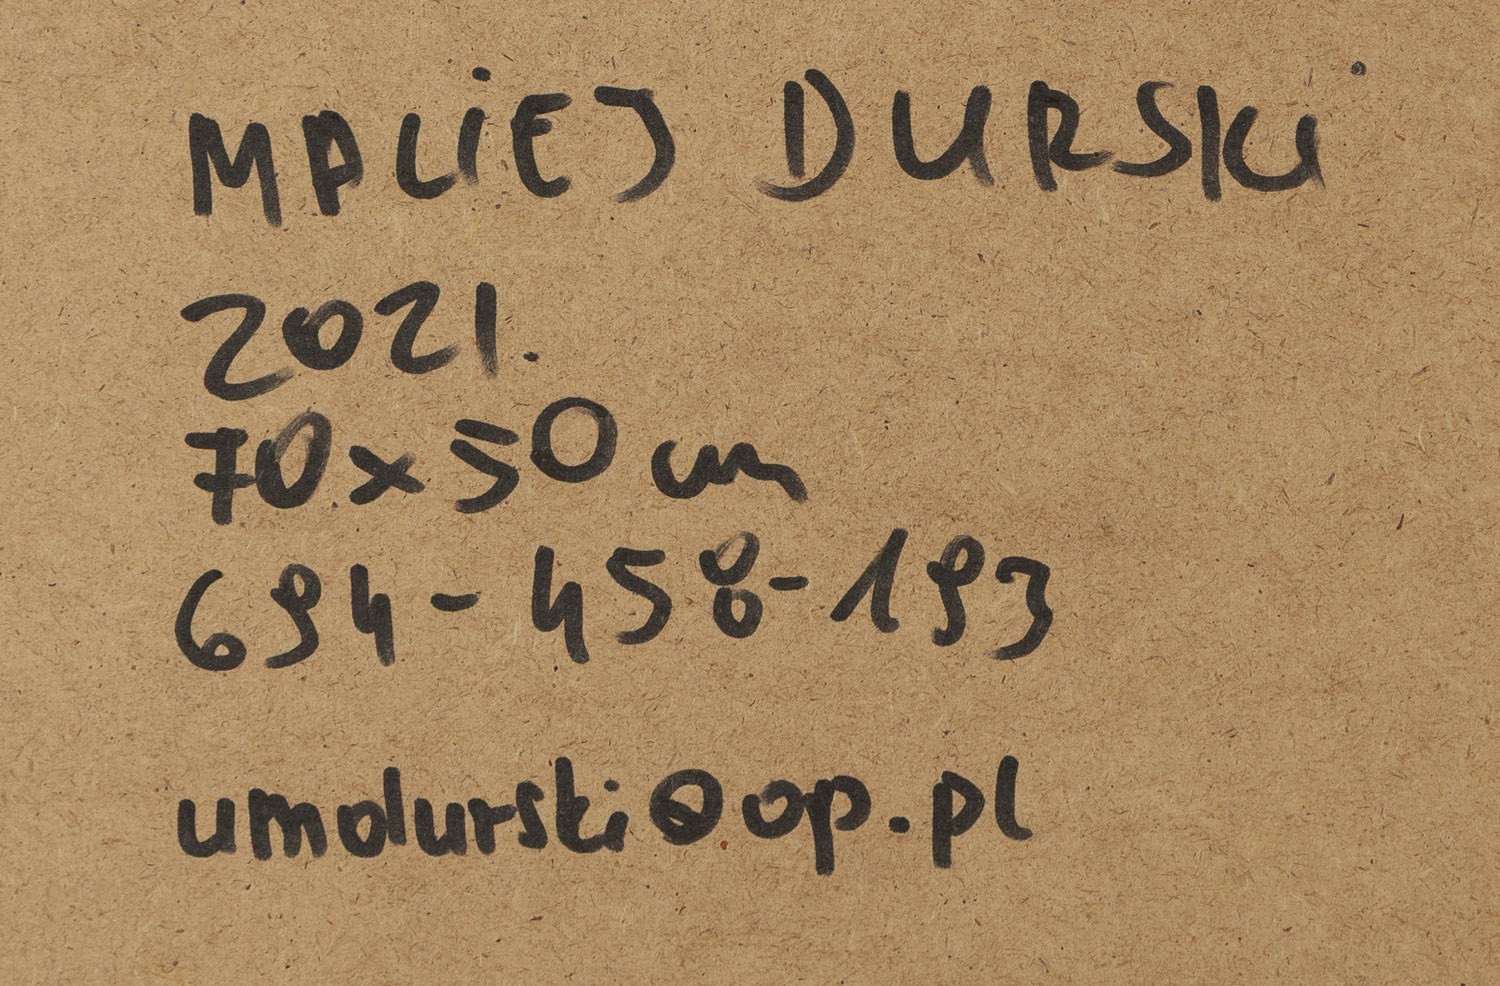 MACIEJ DURSKI
2021.
70x50 cm
694-458-193
umdurski@op.pl